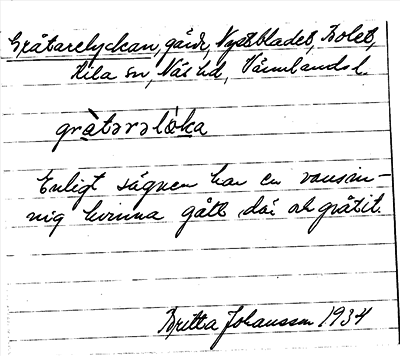 Gråtarelyckan, gård, Nystbladet, Bolet,
Kila sn, Näs hd, Värmlands l.
gràtərəl&#596;̀ka
Enligt sägnen har en vansin-
nig kvinna gått där och gråtit.
Britta Johansson 1934